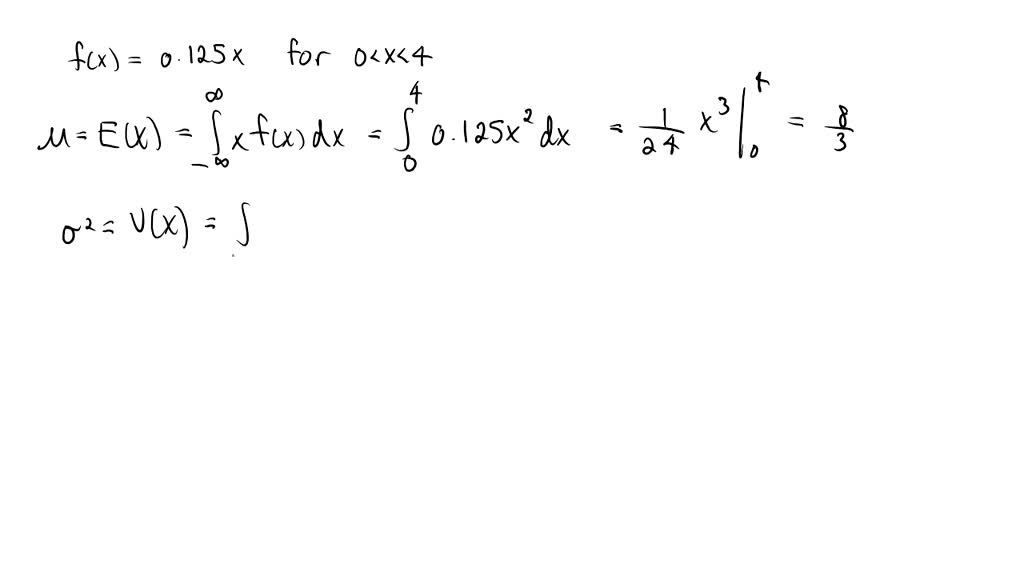 f(x) = 0.125x for 0<x<4
μ = E(X) = ∫_{-∞}^{∞} x f(x) dx = ∫_{0}^{4} 0.125x² dx = 1/24 x³ |_{0}^{4} = 8/3
σ² = V(X) = ∫